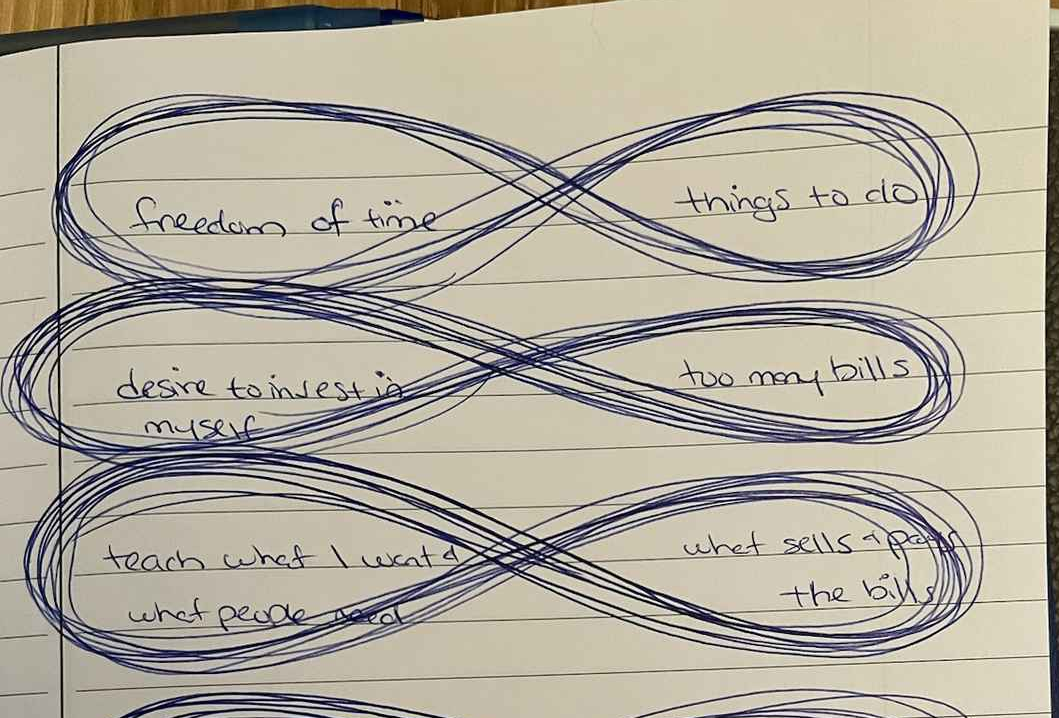 freedom of time
things to do
desire to invest in
myself
too many bills
teach what I want &
what people need
what sells & pays
the bills